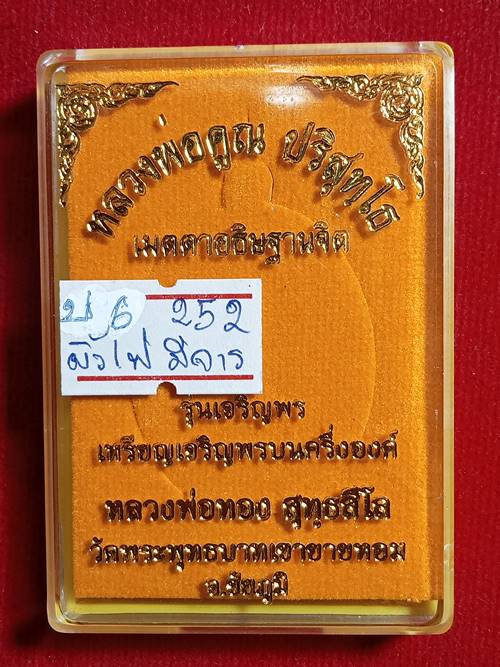 หลวงพ่อคูณ ปริสุทฺโธ
เมตตาอธิษฐานจิต
252
ผิวไฟ มีจาร
รุ่นเจริญพร
เหรียญเจริญพรบนครึ่งองค์
หลวงพ่อทอง สุทธสีโล
วัดพระพุทธบาทเขายายหอม
จ.ชัยภูมิ